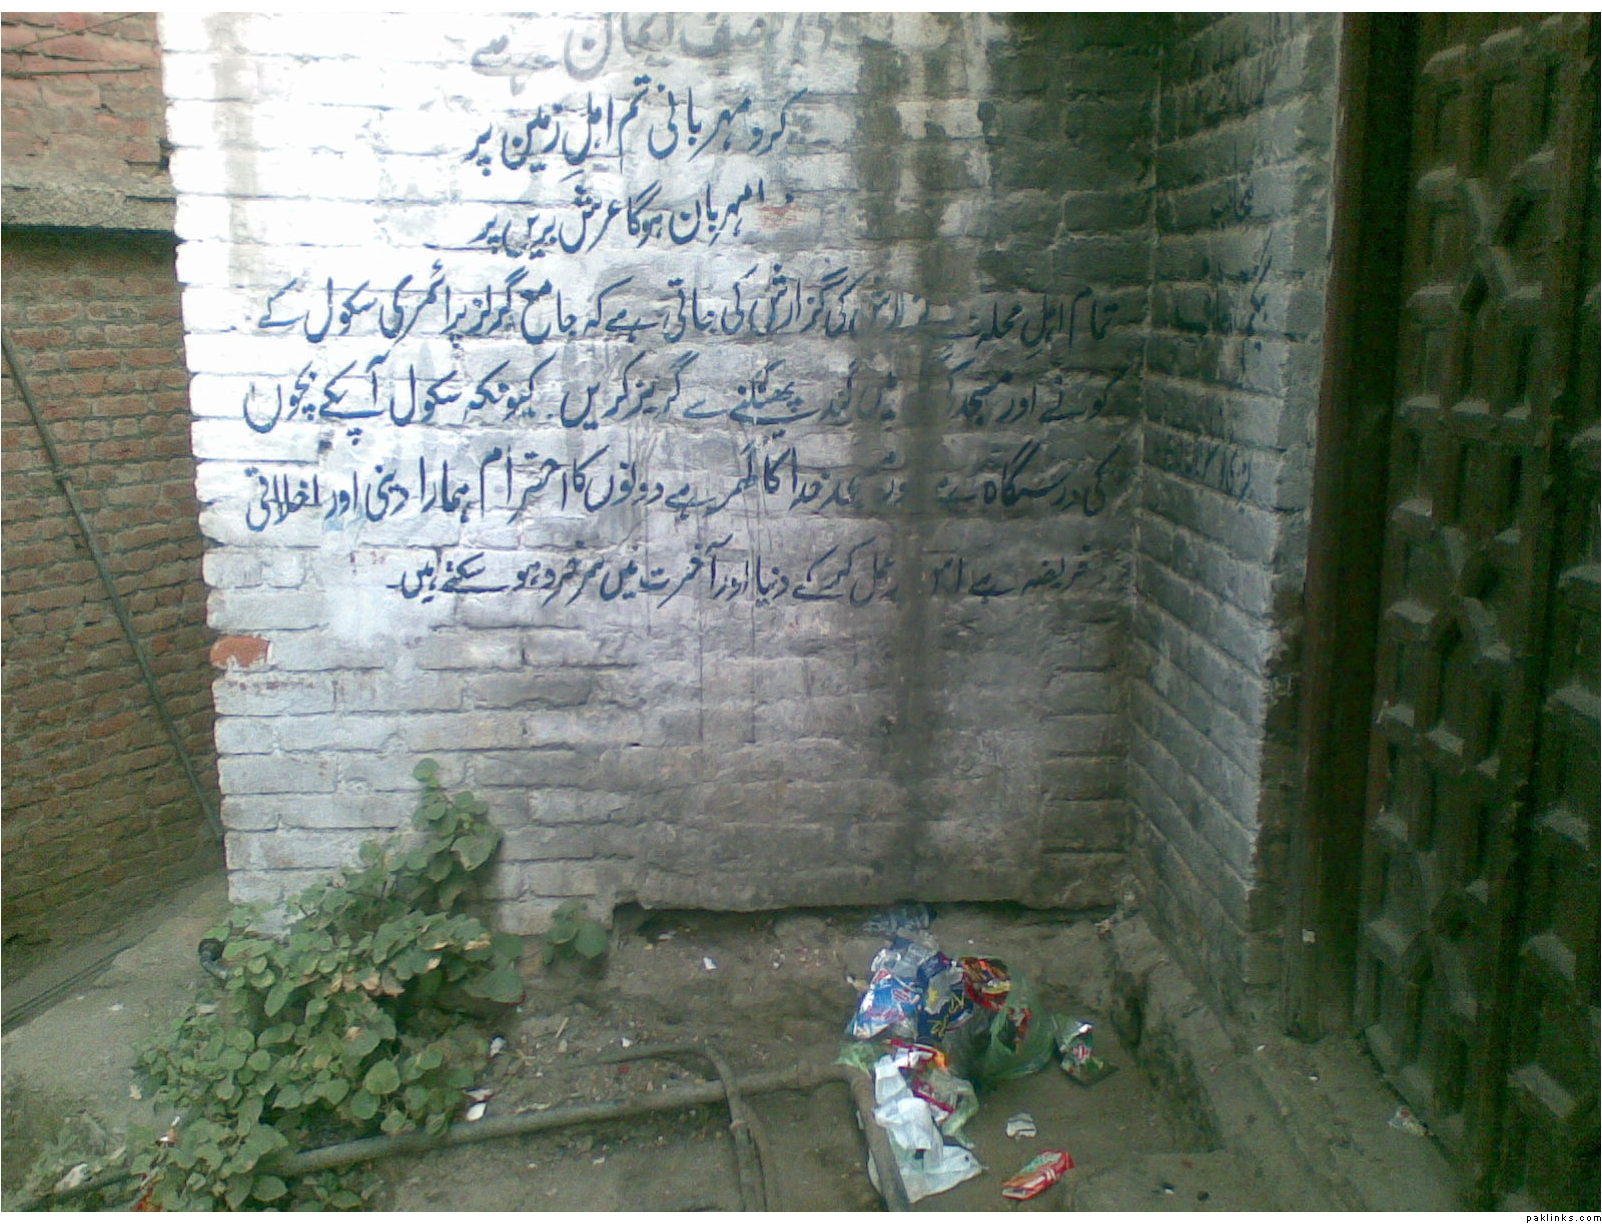 صف ایمان ہے
کرو مہربانی تم اہلِ زمین پر
مہرباں ہوگا عرشِ بریں پر
تمام اہلِ محلہ سے گزارش کی جاتی ہے کہ جامع گرلز پرائمری سکول کے
کونے اور مسجد میں گند پھینکنے سے گریز کریں۔ کیونکہ سکول آپکے بچوں
کی درسگاہ ہے اور مسجد خدا کا گھر ہے دونوں کا احترام ہمارا دینی اور اخلاقی
فریضہ ہے اس عمل کر کے دنیا اور آخرت میں سرخرو ہو سکتے ہیں۔
منجانب
paklinks.com